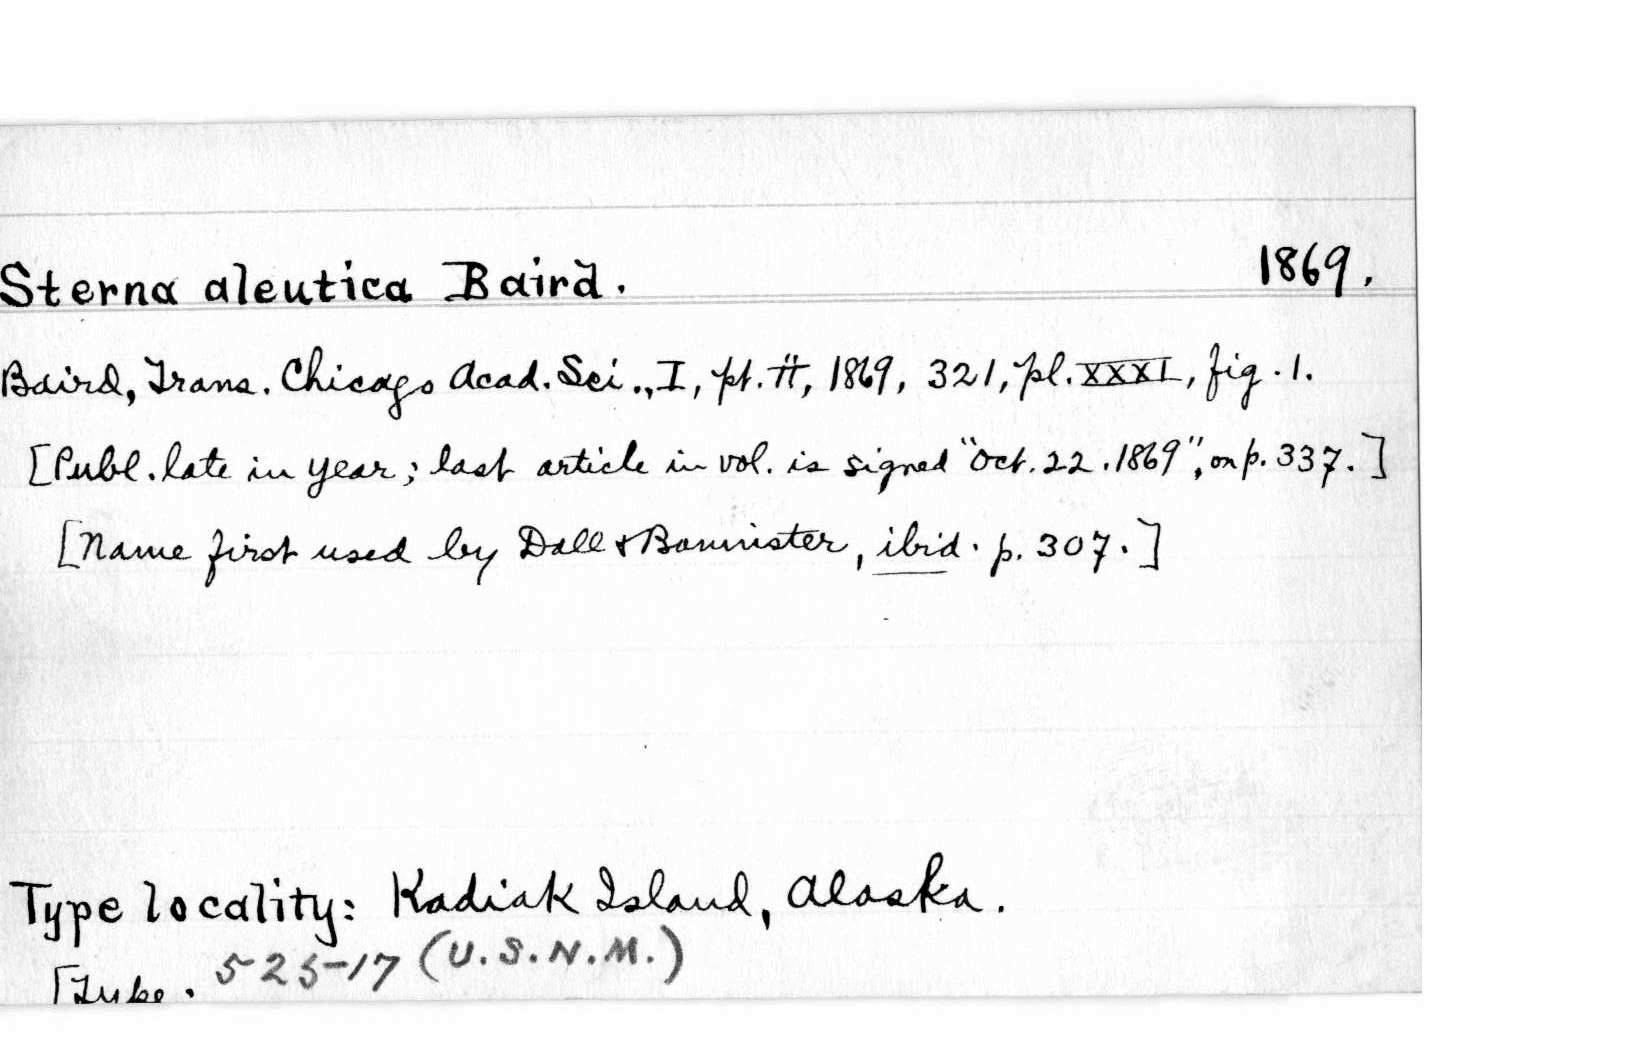 Sterna aleutica Baird. 1869.
Baird, Trans. Chicago Acad. Sci., I, pt. II, 1869, 321, pl. XXXI, fig. 1.
[Publ. late in year; last article in vol. is signed "Oct. 22. 1869", on p. 337.]
[Name first used by Dall & Bannister, ibid. p. 307.]
Type locality: Kadiak Island, Alaska.
[Type. 52517 (U.S.N.M.)